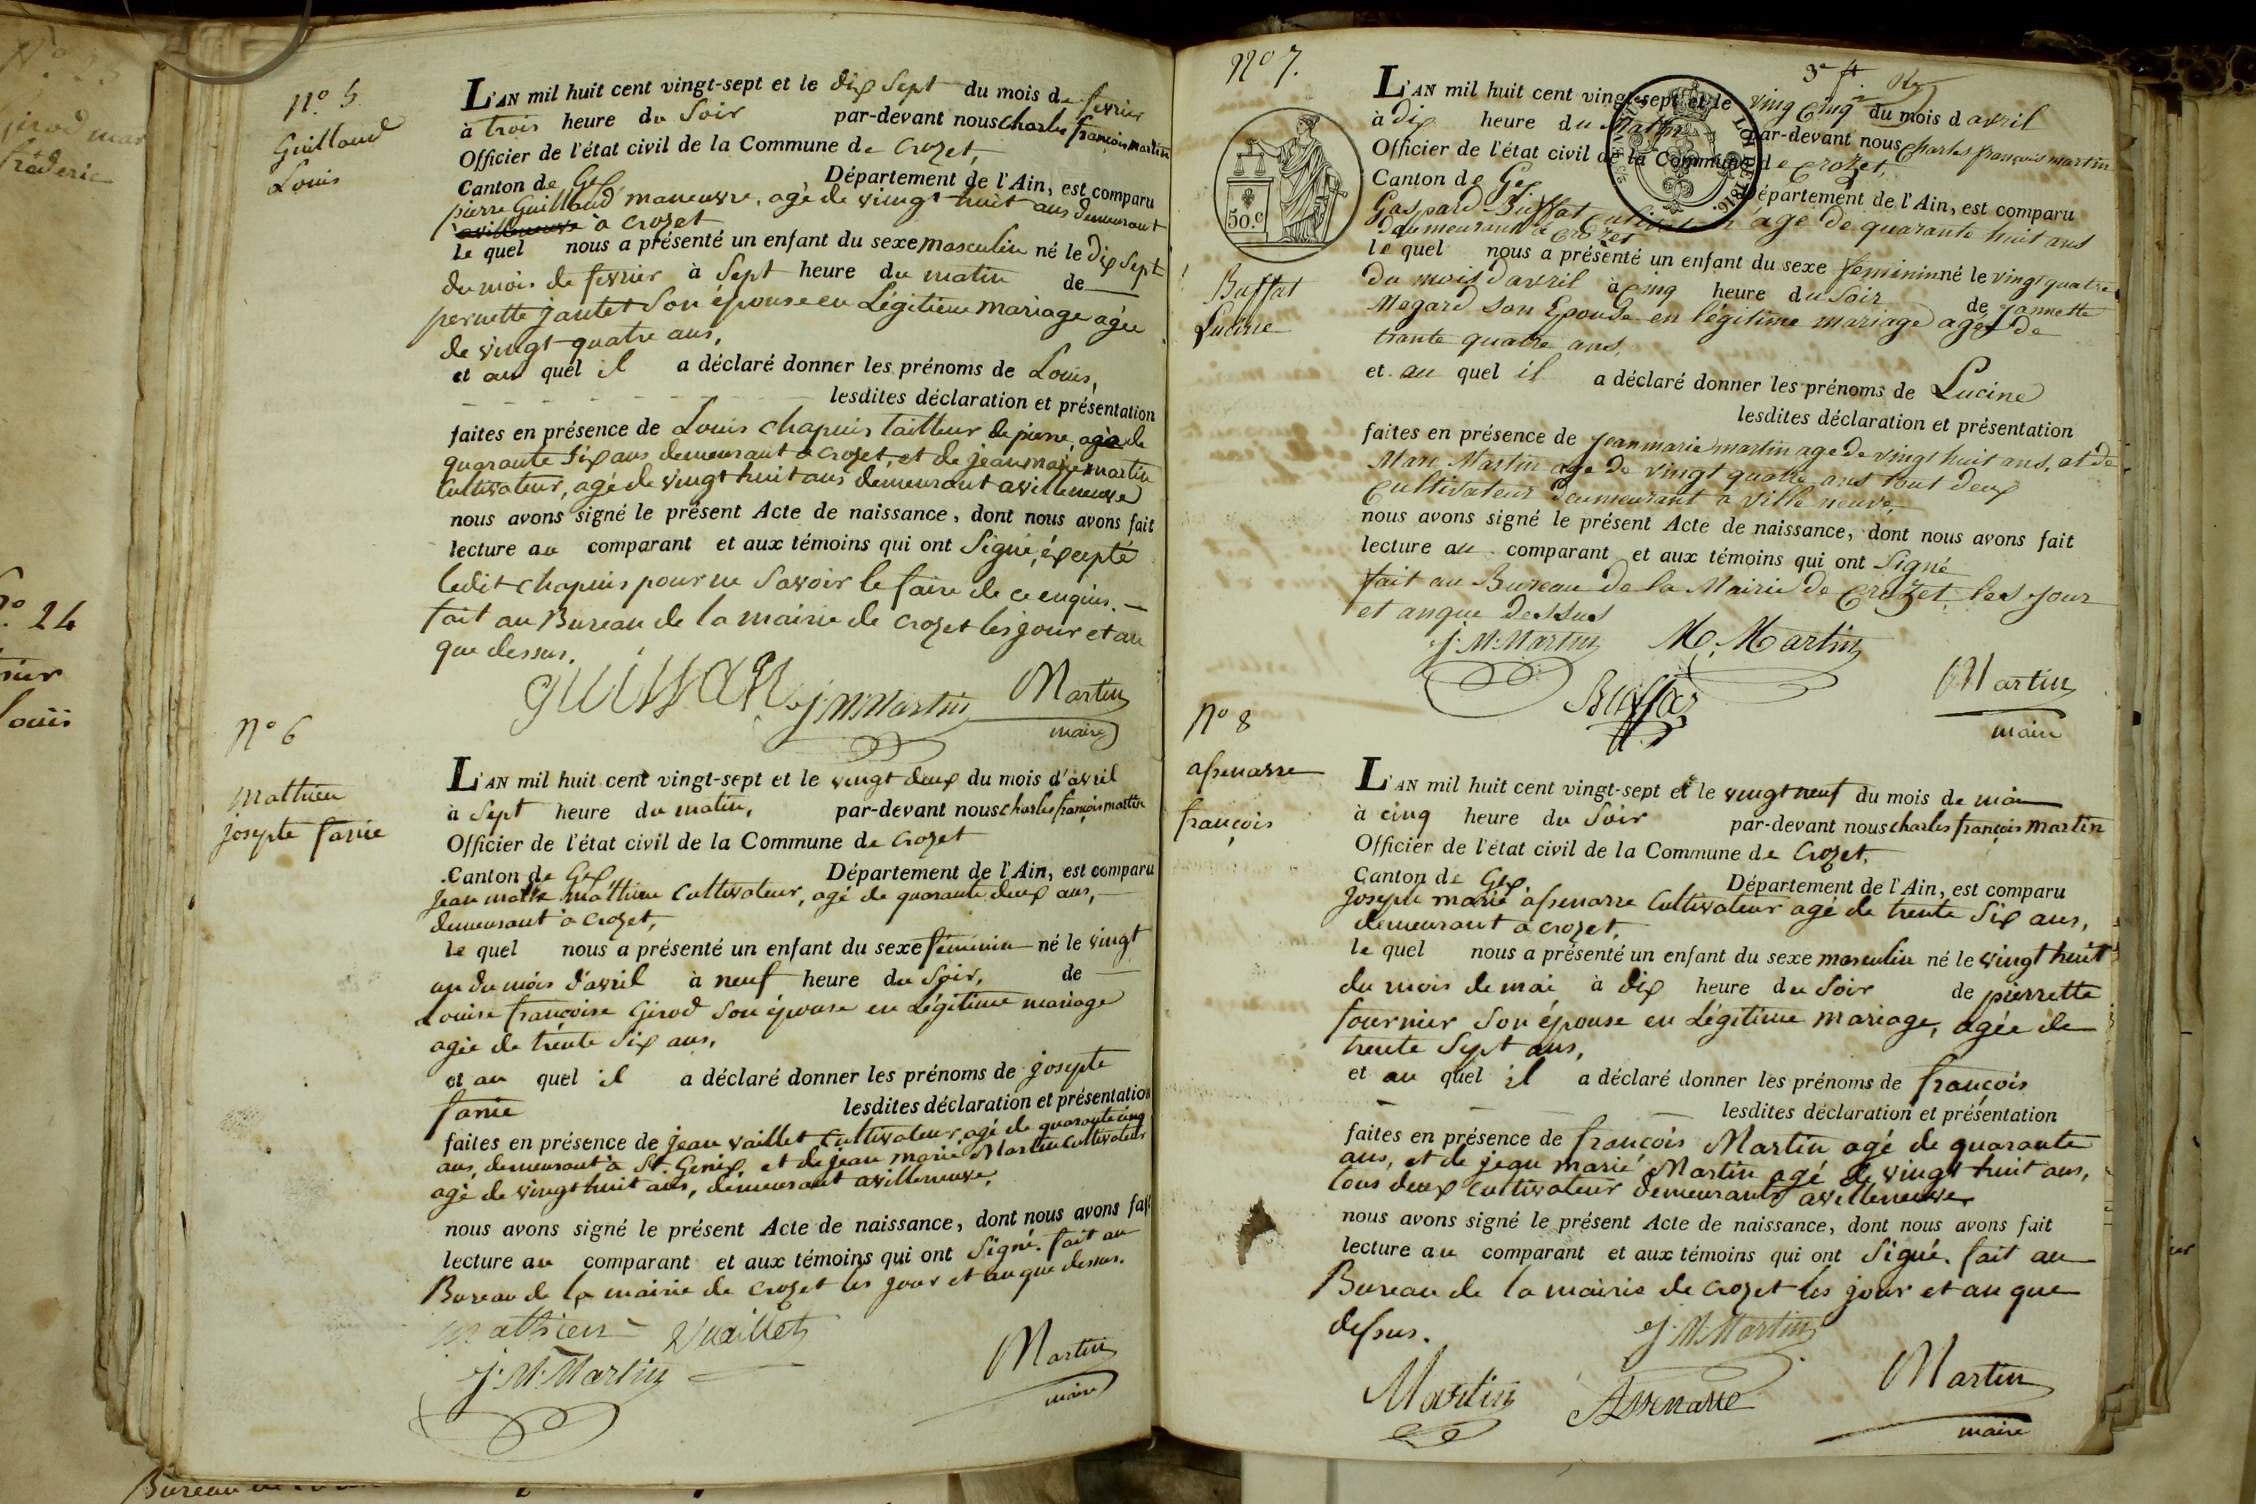 N.° 5
Guilland
Louis
L'AN mil huit cent vingt-sept et le dix sept du mois de fevrier
à trois heure du Soir par-devant nous charles françois martin
Officier de l'état civil de la Commune de Crozet,
Canton de Gex Département de l'Ain, est comparu
pierre Guilland maneuvre, agé de vingt huit ans demeurant
à crozet
le quel nous a présenté un enfant du sexe masculin né le dix sept
du mois de fevrier à Sept heure du matin de
pernette jantet Son épouse en Légitime mariage agée
de vingt quatre ans,
et au quel il a déclaré donner les prénoms de Louis,
lesdites déclaration et présentation
faites en présence de Louis chapuis tailleur de pierre, agé de
quarante Six ans demeurant à crozet, et de jean marie martin
Cultivateur, agé de vingt huit ans demeurant a villeneuve
nous avons signé le présent Acte de naissance, dont nous avons fait
lecture au comparant et aux témoins qui ont Signé, éxcepté
ledit chapuis pour ne Savoir le faire de ce enquis.
fait au Bureau de la mairie de crozet les jour et an
que dessus.
guilland J. M. Martin Martin
maire
N° 6
Mathieu
josepte fanie
L'AN mil huit cent vingt-sept et le vingt deux du mois d'avril
à Sept heure du matin, par-devant nous charles françois martin
Officier de l'état civil de la Commune de Crozet
Canton de Gex Département de l'Ain, est comparu
Jean mathieu Cultivateur, agé de quarante deux ans,
demeurant à Crozet,
le quel nous a présenté un enfant du sexe féminin né le vingt
un du mois d'avril à neuf heure du Soir, de
Louise françoise Girod Son épouse en Légitime mariage
agée de trente Six ans,
et au quel il a déclaré donner les prénoms de josepte
fanie lesdites déclaration et présentation
faites en présence de jean vaillet Cultivateur agé de quarante cinq
ans, demeurant à St. Genix, et de jean marie Martin Cultivateur
agé de vingt huit ans, demeurant a villeneuve,
nous avons signé le présent Acte de naissance, dont nous avons fait
lecture au comparant et aux témoins qui ont Signé. fait au
Bureau de la mairie de crozet les jour et an que dessus.
Mathieu Vuaillet
J. M. Martin Martin
maire
N° 7.
50.c
LOI DE 1816.
Buffat
Lucine
L'AN mil huit cent vingt-sept et le ving cinq du mois d avril
à dix heure du Matin par-devant nous Charles françois martin
Officier de l'état civil de la Commune de Crozet,
Canton de Gex Département de l'Ain, est comparu
Gaspard Buffat cultivateur agé de quarante huit ans
demeurant à Crozet
le quel nous a présenté un enfant du sexe feminin né le vingt quatre
du mois d'avril à cinq heure du Soir de jannette
Megard son Epouse en légitime mariage agée de
trante quatre ans,
et au quel il a déclaré donner les prénoms de Lucine
lesdites déclaration et présentation
faites en présence de jean marie martin age de vingt huit ans, et de
Marc Martin age de vingt quatre ans tout deux
Cultivateur demeurant à Ville neuve,
nous avons signé le présent Acte de naissance, dont nous avons fait
lecture au comparant et aux témoins qui ont Signé
fait au Bureau de la Mairie de Crozet les jour
et anque dessus
J. M. Martin M. Martin
Buffat Martin
maire
N° 8
assenarre
françois
L'AN mil huit cent vingt-sept et le vingt neuf du mois de mai
à cinq heure du Soir par-devant nous charles françois Martin
Officier de l'état civil de la Commune de Crozet,
Canton de Gex Département de l'Ain, est comparu
Joseph marie assenarre Cultivateur agé de trente Six ans,
demeurant à crozet,
le quel nous a présenté un enfant du sexe masculin né le vingt huit
du mois de mai à dix heure du Soir de pierrette
fournier Son épouse en Légitime mariage, agée de
trente Sept ans,
et au quel il a déclaré donner les prénoms de françois
lesdites déclaration et présentation
faites en présence de françois Martin agé de quarante
ans, et de jean marie Martin agé de vingt huit ans,
tous deux Cultivateur demeurants a villeneuve
nous avons signé le présent Acte de naissance, dont nous avons fait
lecture au comparant et aux témoins qui ont Signé. fait au
Bureau de la mairie de crozet les jour et an que
dessus.
J. M. Martin
Martin Assenarre Martin
maire